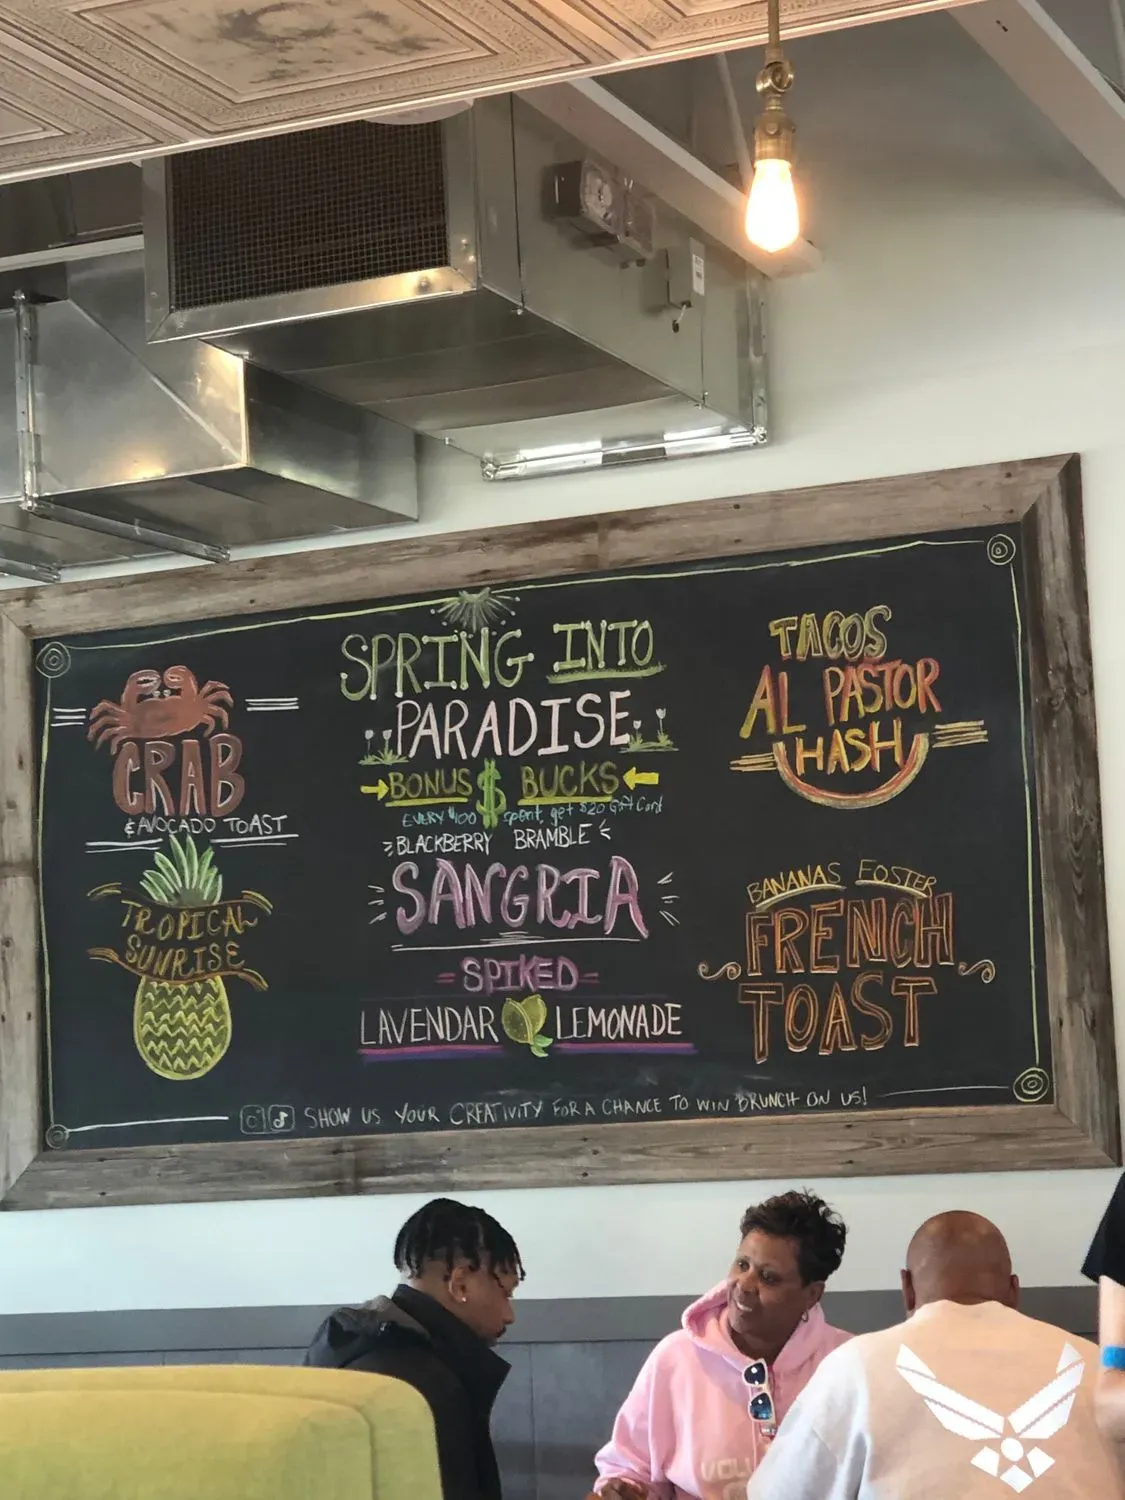 CRAB
& AVOCADO TOAST
TROPICAL
SUNRISE
SPRING INTO
PARADISE
BONUS $ BUCKS
EVERY $100 spent, get $20 Gift Card
BLACKBERRY BRAMBLE
SANGRIA
SPIKED
LAVENDAR LEMONADE
TACOS
AL PASTOR
HASH
BANANAS FOSTER
FRENCH
TOAST
SHOW US YOUR CREATIVITY FOR A CHANCE TO WIN BRUNCH ON US!